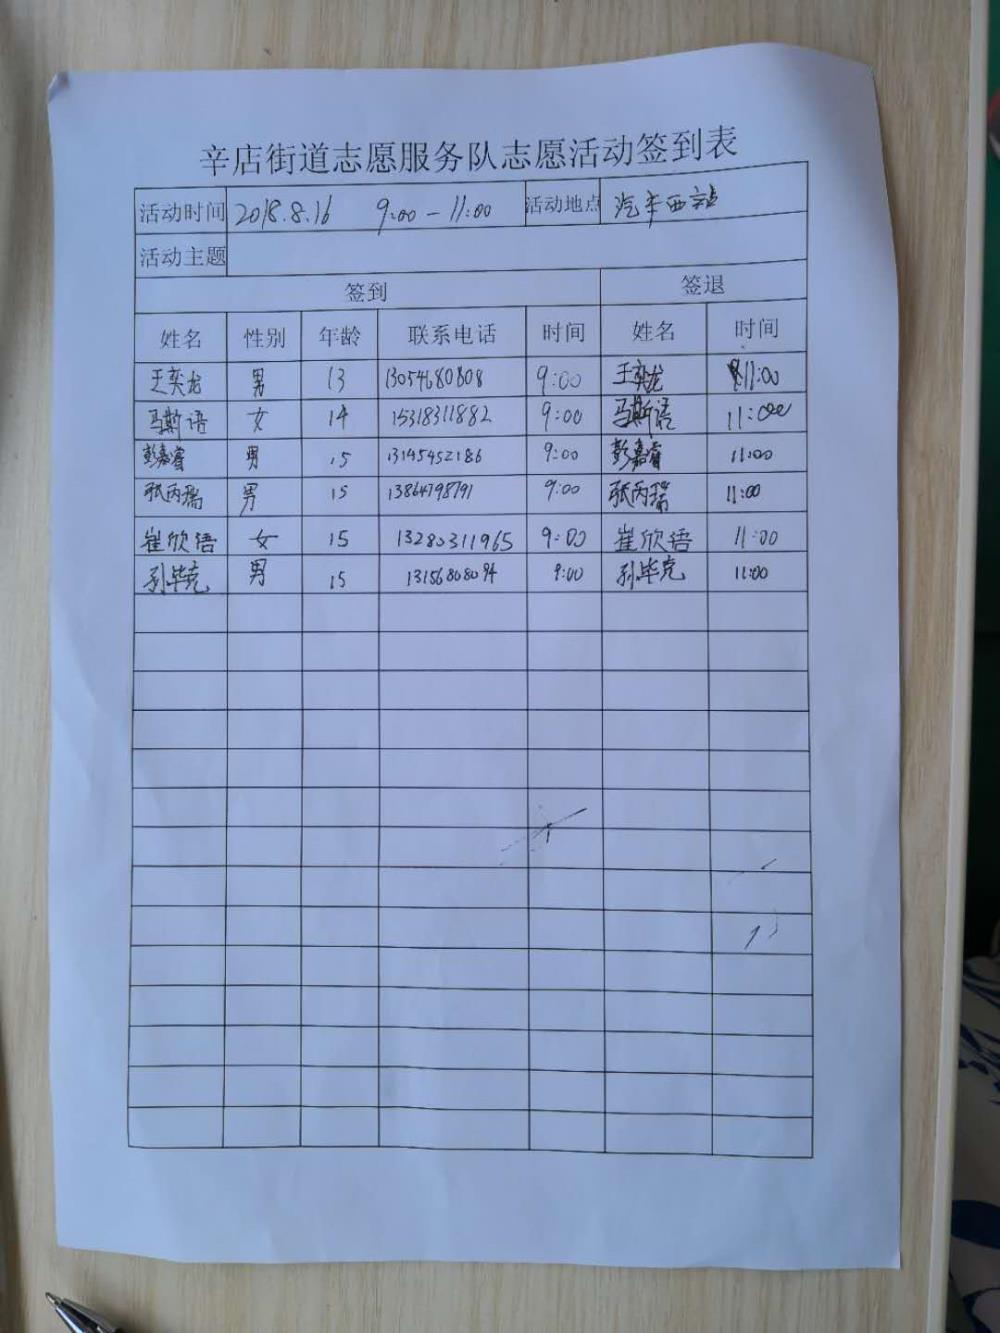 辛店街道志愿服务队志愿活动签到表
活动时间 2018.8.16 9:00-11:00 活动地点 汽车西站
活动主题
签到 签退
姓名 性别 年龄 联系电话 时间 姓名 时间
王奕龙 男 13 13054680808 9:00 王奕龙 11:00
马斯语 女 14 15318311882 9:00 马斯语 11:00
彭嘉睿 男 15 13145452186 9:00 彭嘉睿 11:00
张丙瑞 男 15 13864798791 9:00 张丙瑞 11:00
崔欣语 女 15 13280311965 9:00 崔欣语 11:00
孙毕克 男 15 13156808094 9:00 孙毕克 11:00